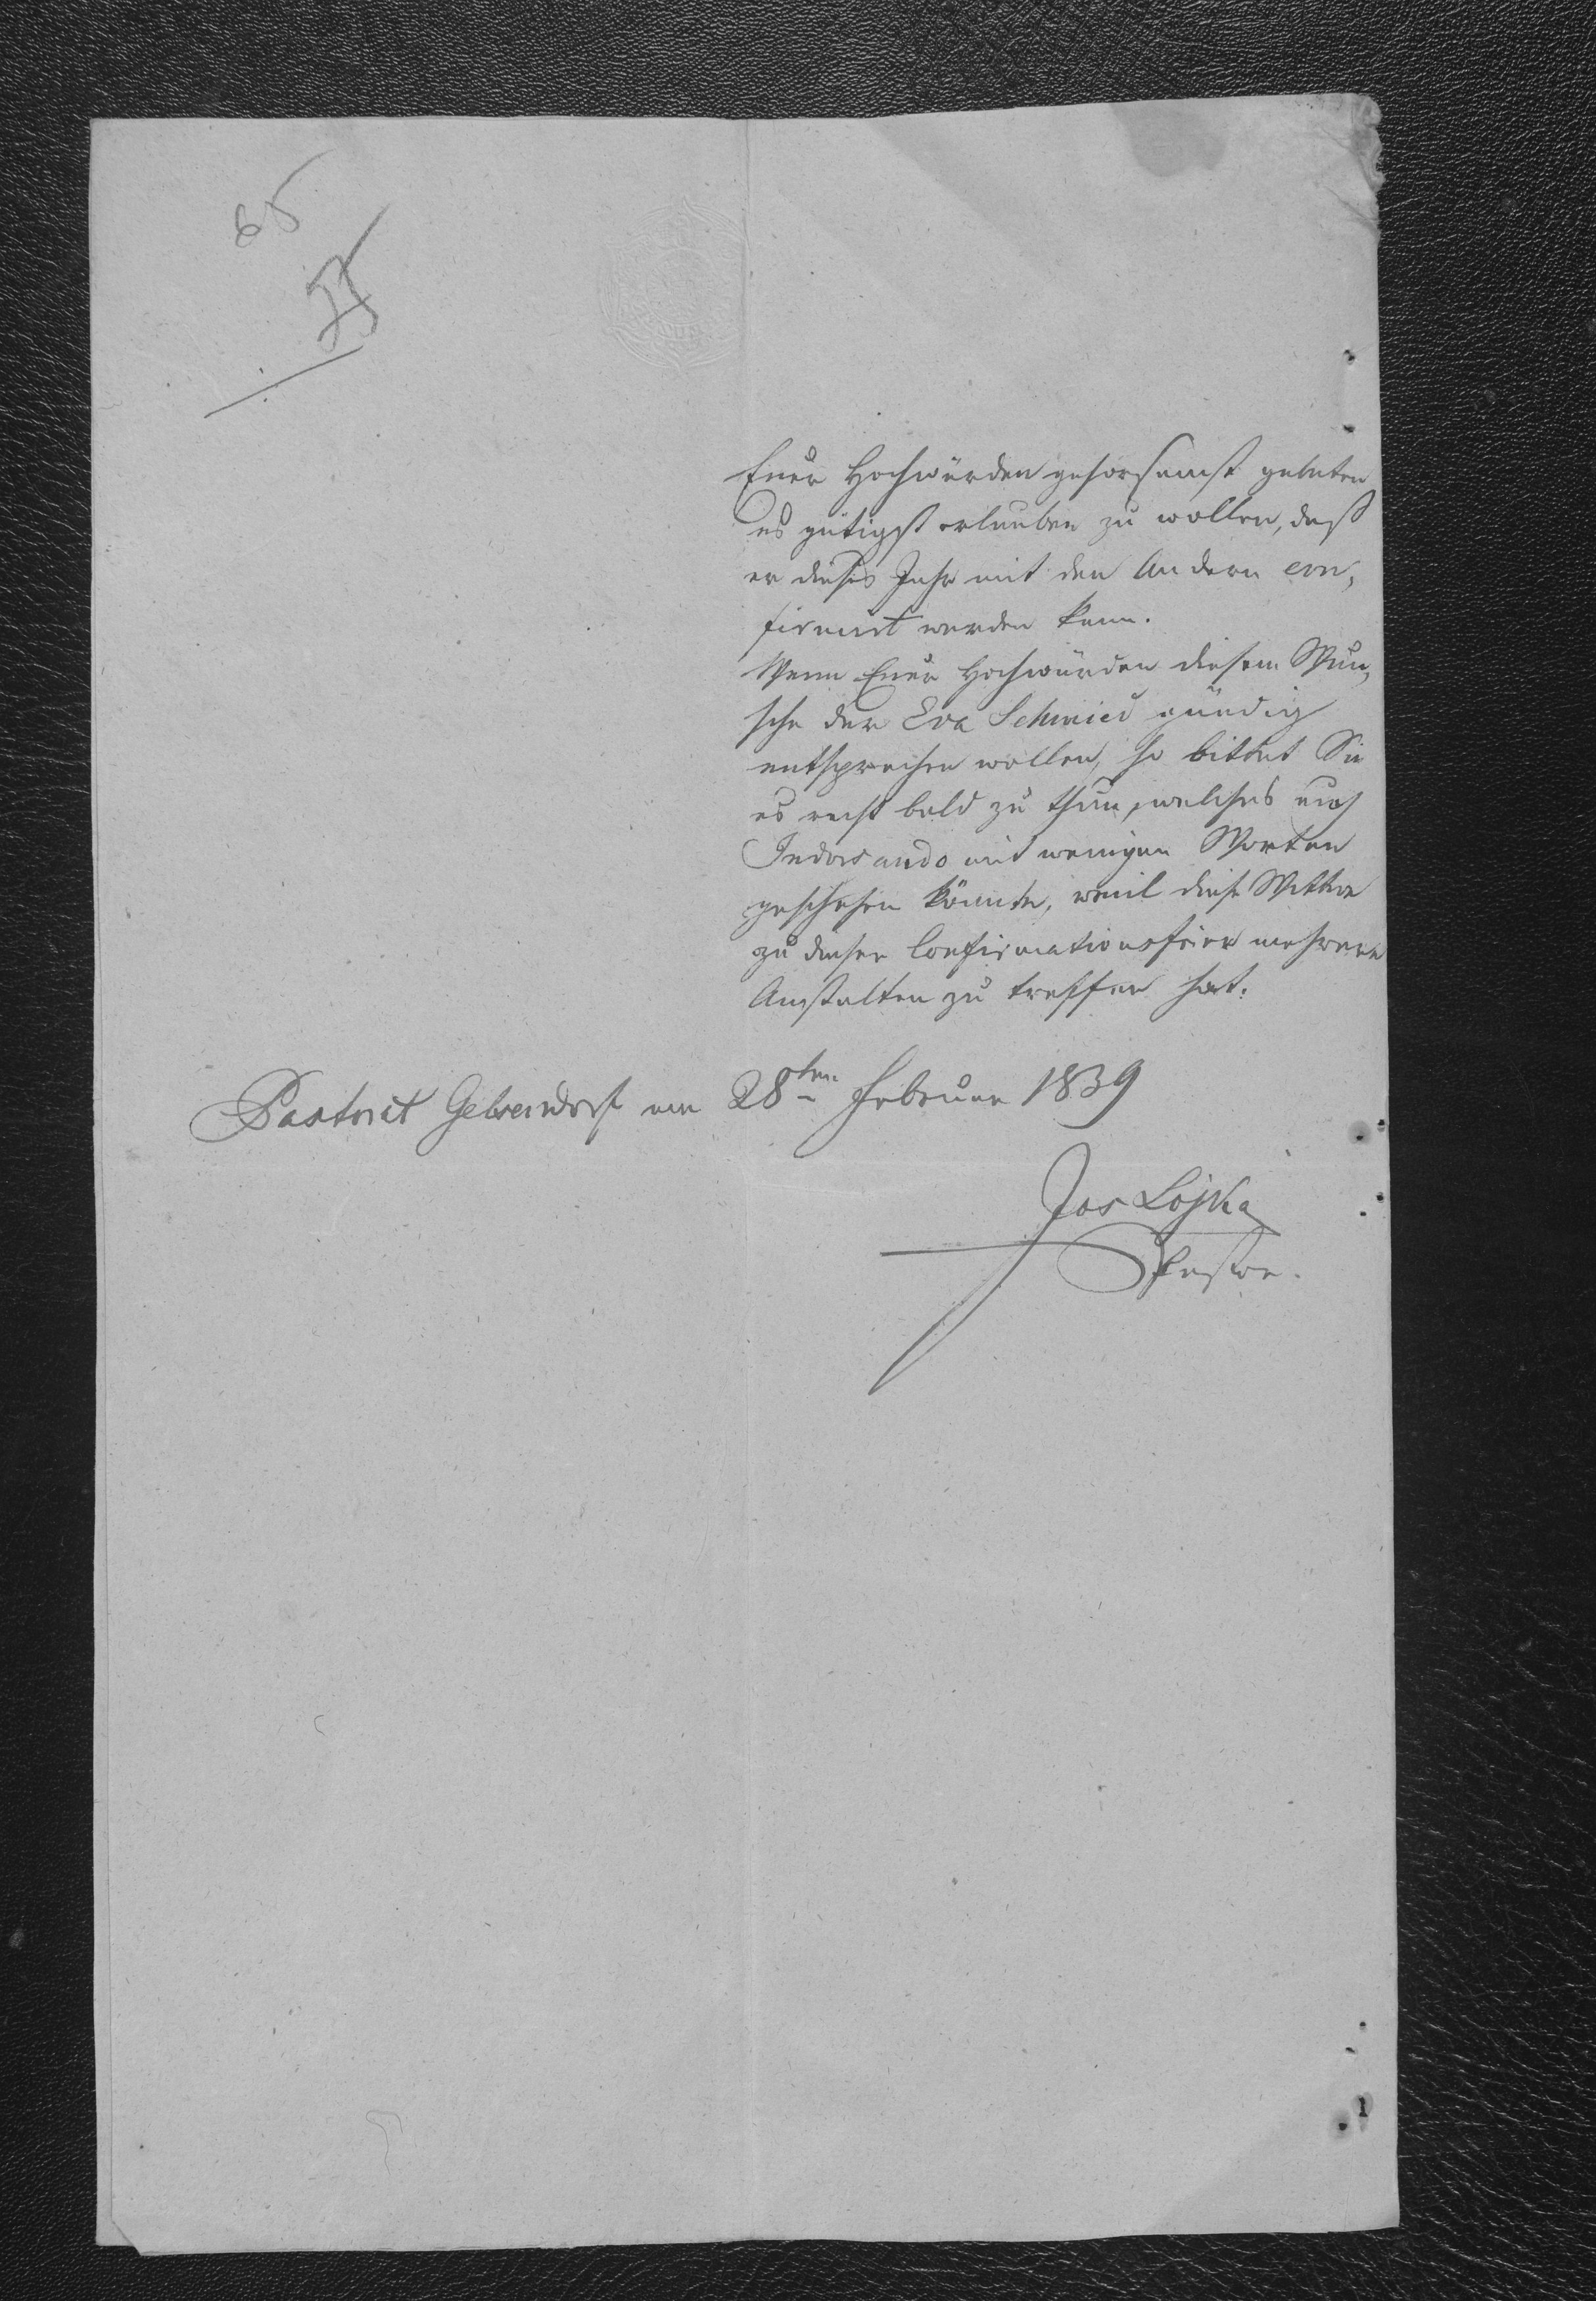 65
Euer Hochwürden gehorsamst gebeten
es gütigst erlauben zu wollen, daß
er dieses Jahr mit den Andern con„
firmirt werden kann.
Wenn Euer Hochwürden diesem Wun„
sche der Eva Schmied gnädig
entsprechen wollen, so bittet Sie
es recht bald zu thun, welches auch
Indorsando mit wenigen Worten
geschehen könnte, weil diese Wittwe
zu dieser Confirmationsfeier mehrere
Anstalten zu treffen hat.
Pastorat Gelsendorf am 28ten Februar 1839
Jos Lojka
Pastor.